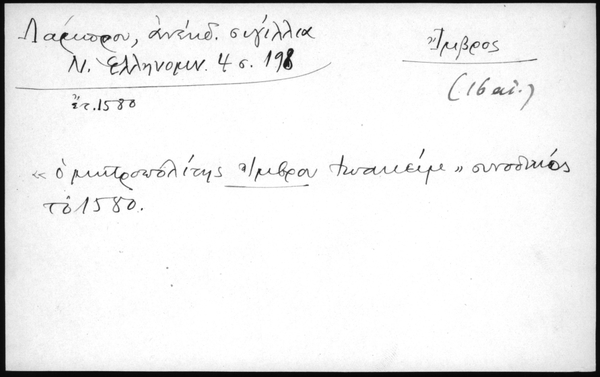 Λάμπρου, ἀνέκδ. σιγίλλια
Ν. Ἑλληνομν. 4 σ. 198
ἔτ. 1580
Ἴμβρος
(16 αἰ.)
« ὁ μητροπολίτης Ἴμβρου Ἰωακείμ » συνοδικός
τὸ 1580.